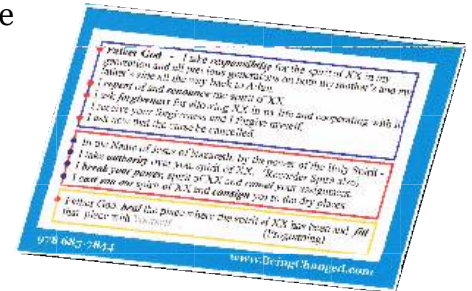 e
Father God - I take responsibility for the spirit of XX in my
generation and all previous generations on both my mother's and my
father's side all the way back to Adam.
I repent of and renounce the spirit of XX.
I ask forgiveness for allowing XX in my life and cooperating with it.
I receive your forgiveness and I forgive myself.
I ask now that the curse be cancelled.
In the Name of Jesus of Nazareth, by the power of the Holy Spirit -
I take authority over you spirit of XX.
I break your power, spirit of XX and cancel your assignment.
I cast you out spirit of XX and consign you to the dry places.
Father God, heal the place where the spirit of XX has been and fill
that place with Yourself.
978 683-7844 www.BeingChanged.com